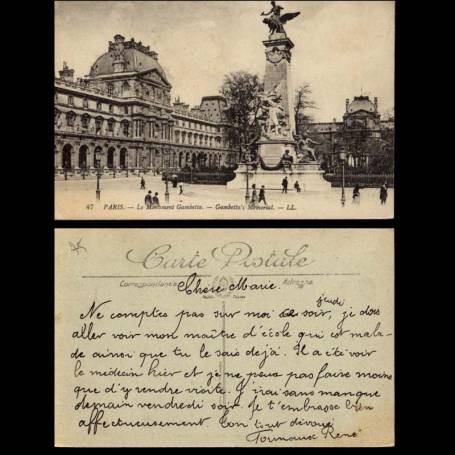 47 PARIS. — Le Monument Gambetta. — Gambetta's Memorial. — LL.
Carte Postale
Correspondance
Adresse
Chère Marie.
jeudi
Ne comptes pas sur moi ce soir, je dois
aller voir mon maître d'école qui est mala-
de ainsi que tu le sais déjà. Il a été voir
le médecin hier et je ne peux pas faire moins
que d'y rendre visite. J'irai sans manque
demain vendredi soir. Je t'embrasse bien
affectueusement. Ton tout dévoué
René